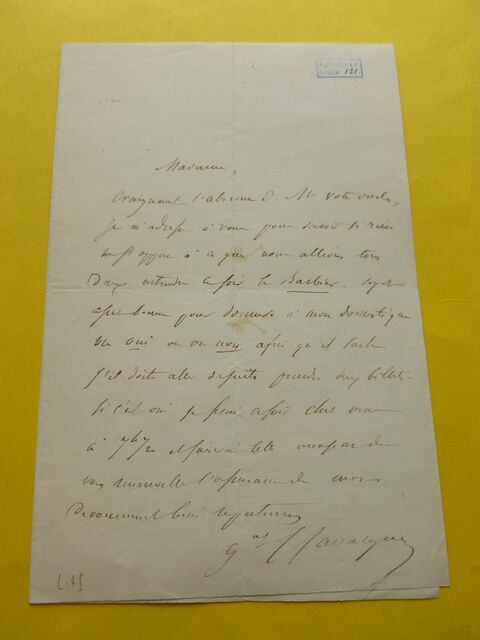 121
Madame,
Craignant l'absence de Mr votre oncle,
je m'adresse à vous pour savoir si rien
ne s'oppose à ce que nous allions tous
deux entendre ce soir le Barbier. Soyez
assez bonne pour donner à mon domestique
un oui ou un non, afin qu'il sache
s'il doit aller de suite prendre des billets.
Si c'est oui je serai ce soir chez vous
à 7h 1/2 et saisirai cette occasion de
vous renouveller l'assurance de mon
dévouement bien
Gal Cavaignac